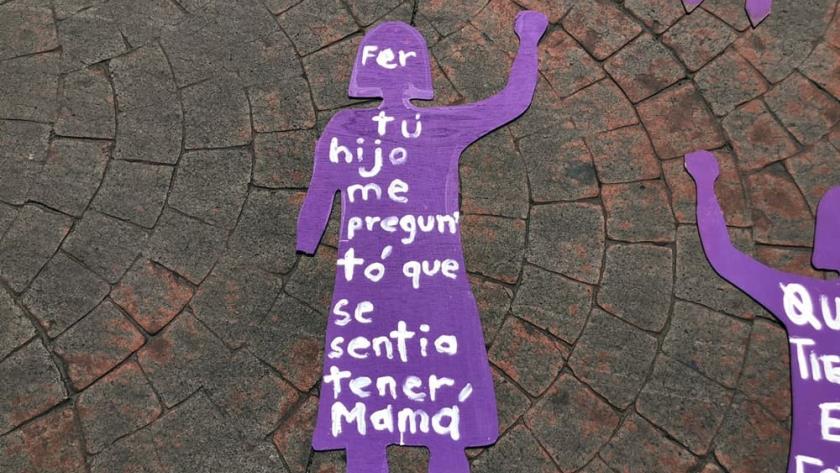 Fer
tú
hijo
me
pregun
tó que
se
sentia
tener
Mamá
QU
TIE
E